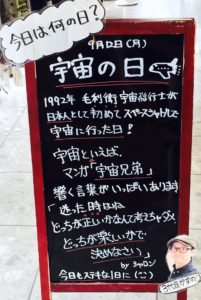 今日は何の日？
9月12日(月)
宇宙の日
1992年 毛利衛宇宙飛行士が
日本人として初めてスペースシャトルで
宇宙に行った日！
宇宙といえば、
マンガ「宇宙兄弟」
響く言葉がいっぱいあります
「迷った時はね
どっちが正しいかなんて考えちゃダメ
どっちが楽しいかで
決めなさい」
by シャロン
今日もステキな1日に(^^)